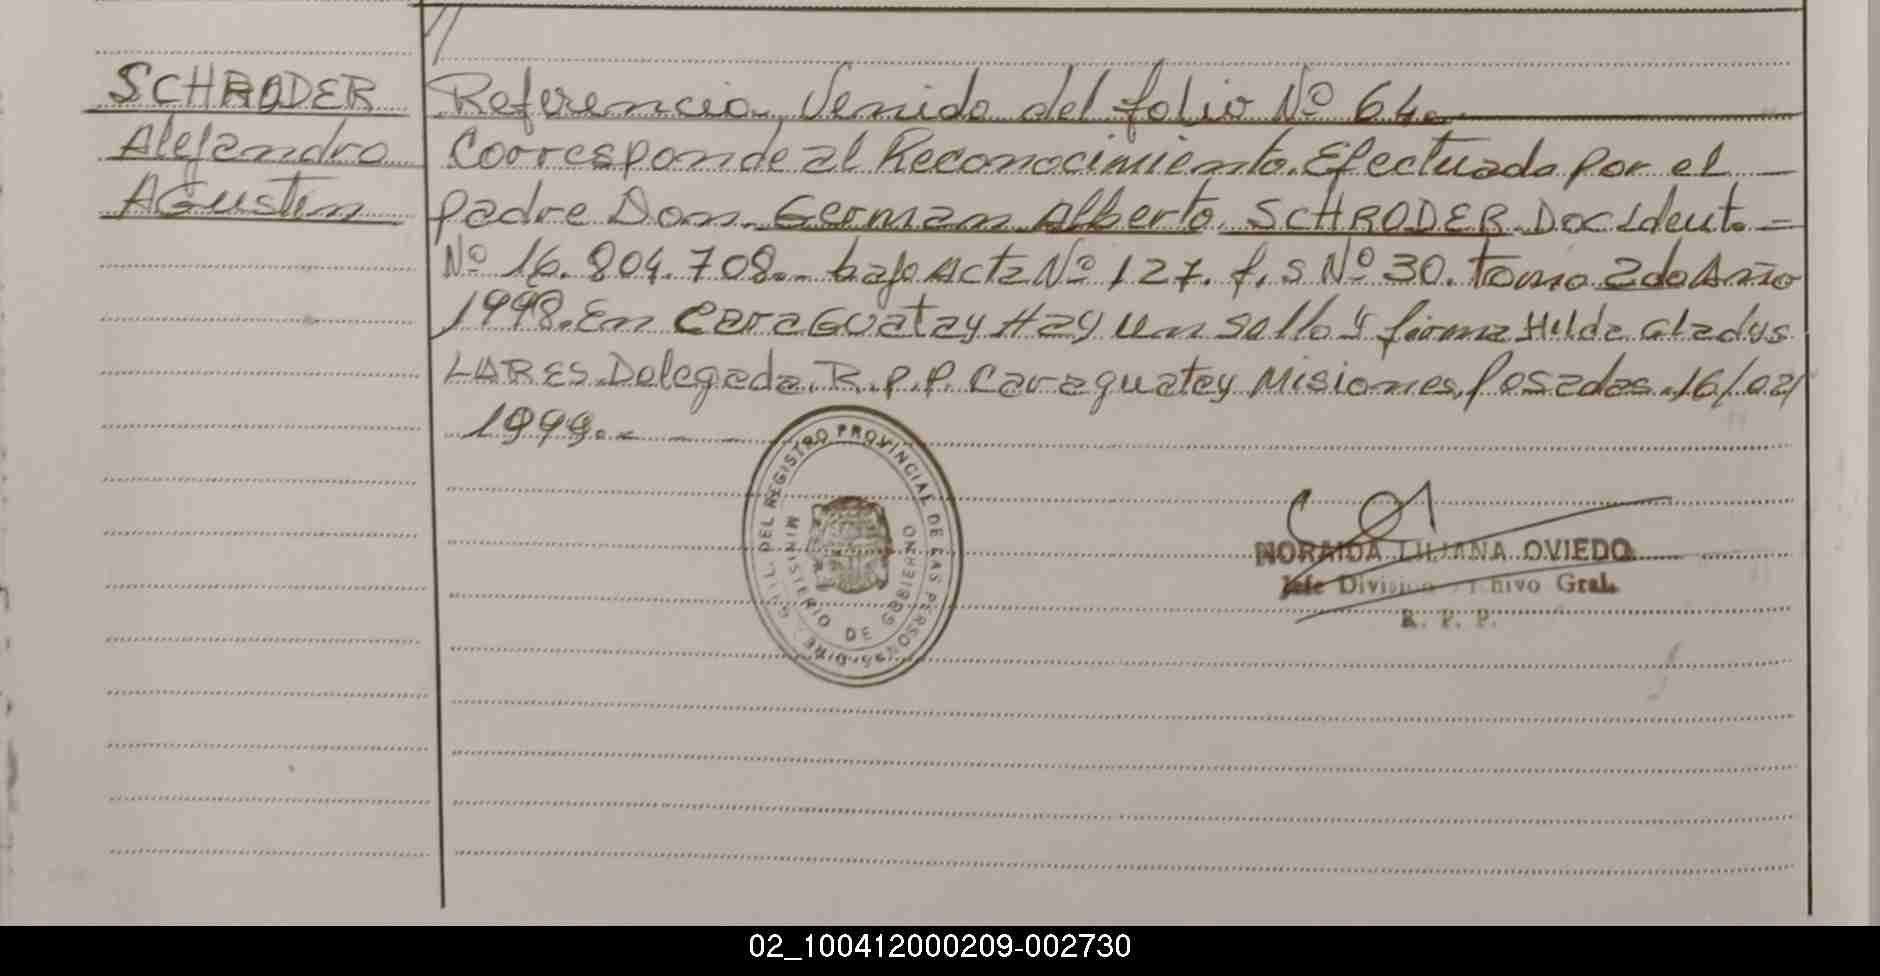 SCHRODER
Alejandro
Agustin
//
Referencia, Venido del folio Nº 64.
Corresponde al Reconocimiento. Efectuado por el
padre Don. German Alberto SCHRODER Doc Ident. =
Nº 16.804.708.- bajo Acta Nº 127. f.s Nº 30. Tomo 2do Año
1998. En Caraguatay Hay un sello y firma Hilda Gladys
LARES Delegada. R.P.P. Caraguatay Misiones, Posadas. 16/02/
1999.-
DEL REGISTRO PROVINCIAL DE LAS PERSONAS
MINISTERIO DE GOBIERNO
NORAIDA LILIANA OVIEDO
Jefe Gral.
R. P. P.
02_100412000209-002730